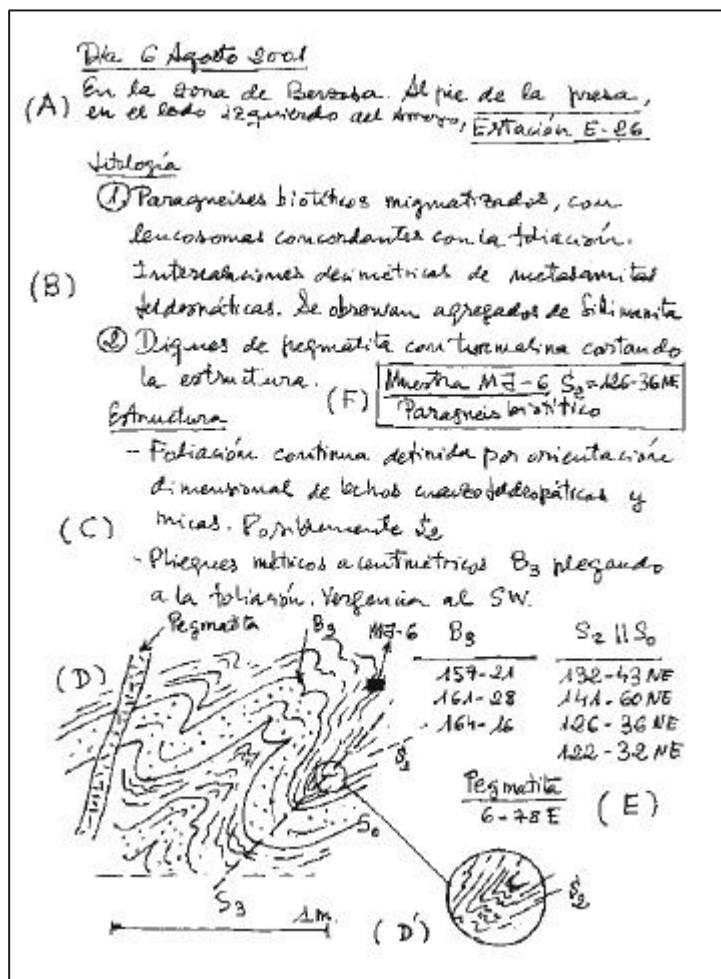 Día 6 Agosto 2001
(A) En la zona de Berzosa. Al pie de la presa,
en el lado izquierdo del arroyo, Estación E-26
Litología
① Paragneises biotíticos migmatizados, con
leucosomas concordantes con la foliación.
(B) Intercalaciones decimétricas de metasamitas
feldespáticas. Se observan agregados de Sillimanita
② Diques de pegmatita con turmalina cortando
la estructura. (F) Muestra MJ-6 S2=126-36NE
Paragneis biotítico
Estructura
- Foliación continua definida por orientación
dimensional de lechos cuarzofeldespáticos y
(C) micas. Posiblemente S2
- Pliegues métricos a centimétricos B3 plegando
a la foliación. Vergencia al SW.
Pegmatita B3 MJ-6 B3 S2 || S0
(D) 157-21 132-43 NE
161-28 141-60 NE
164-16 126-36 NE
122-32 NE
Pegmatita
6-78 E (E)
S0
S2
S3
1m. (D')